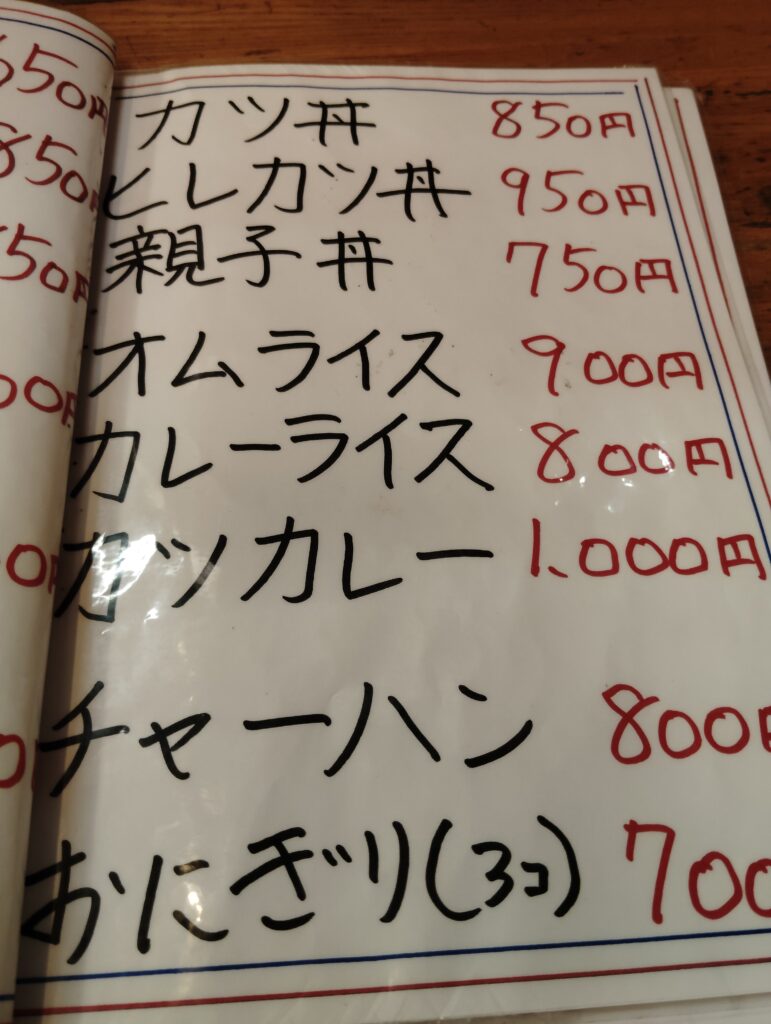 650円
850円
カツ丼 850円
ヒレカツ丼 950円
親子丼 750円
オムライス 900円
カレーライス 800円
カツカレー 1,000円
チャーハン 800円
おにぎり(3コ) 700